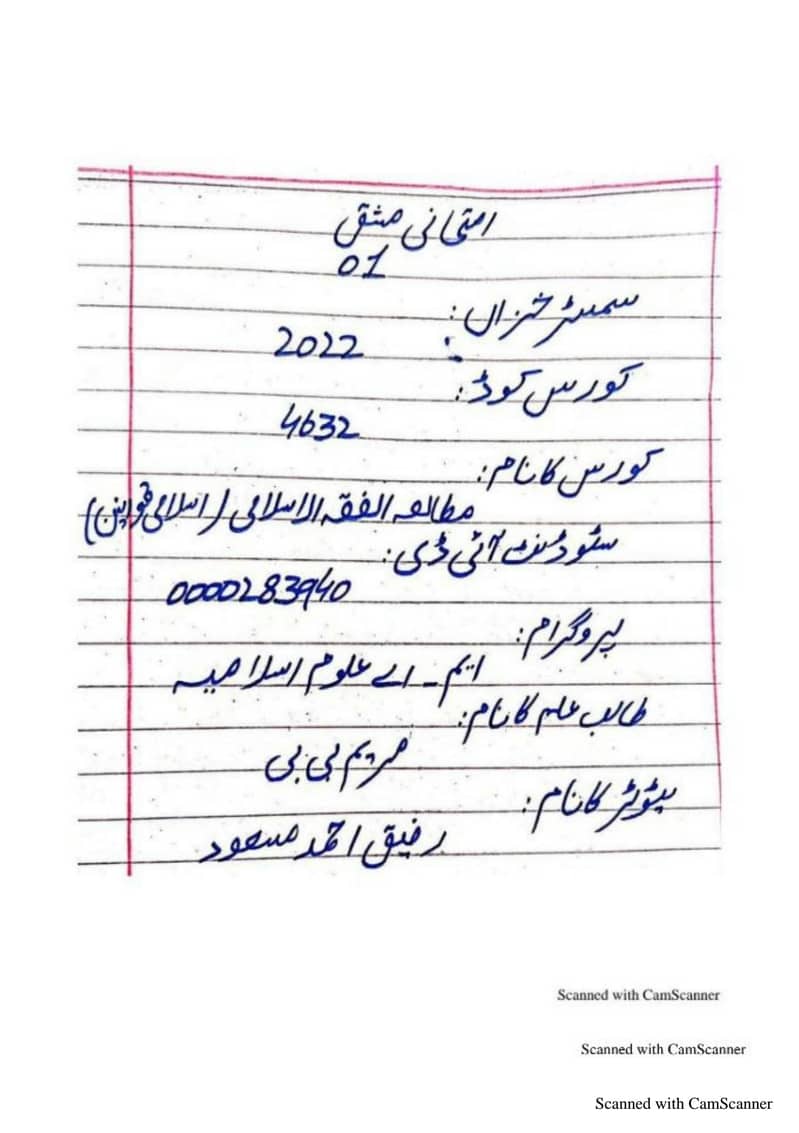 امتحانی مشق
01
سمسٹر خزاں:
2022
کورس کوڈ:
4632
کورس کا نام:
مطالعہ الفقہ الاسلامی (اسلامی قوانین)
سٹوڈنٹ آئی ڈی:
0000283940
پروگرام:
ایم۔اے علوم اسلامیہ
طالب علم کا نام:
مریم بی بی
ٹیوٹر کا نام:
رفیق احمد مسعود
Scanned with CamScanner
Scanned with CamScanner
Scanned with CamScanner